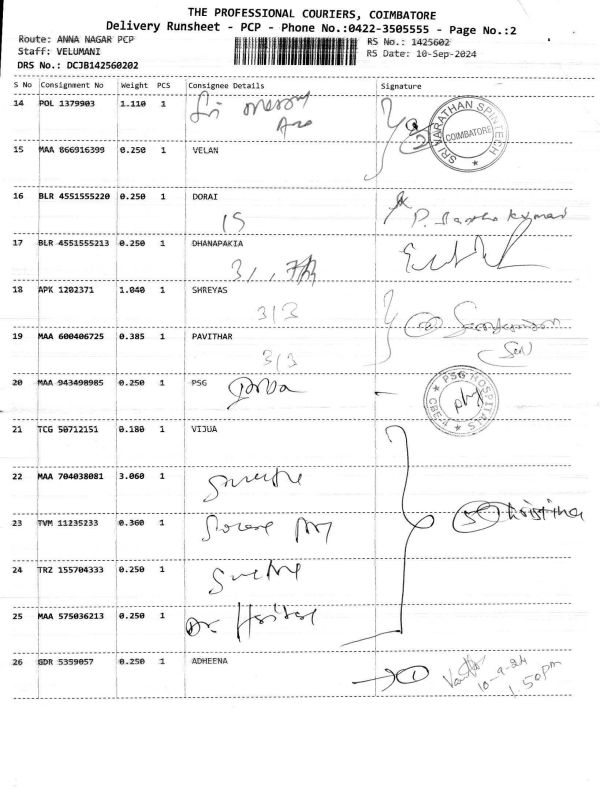 THE PROFESSIONAL COURIERS, COIMBATORE
Delivery Runsheet - PCP - Phone No.:0422-3505555 - Page No.:2
Route: ANNA NAGAR PCP
RS No.: 1425602
Staff: VELUMANI
RS Date: 10-Sep-2024
DRS No.: DCJB142560202
S No Consignment No Weight PCS Consignee Details Signature
14 POL 1379903 1.110 1
SRI VARATHAN SPINTECH
COIMBATORE
15 MAA 866916399 0.250 1 VELAN
16 BLR 4551555220 0.250 1 DORAI
15
17 BLR 4551555213 0.250 1 DHANAPAKIA
18 APK 1202371 1.040 1 SHREYAS
313
19 MAA 600406725 0.385 1 PAVITHAR
313
20 MAA 943498985 0.250 1 PSG
PSG HOSPITALS
CBE-4
21 TCG 50712151 0.180 1 VIJUA
22 MAA 704038081 3.060 1
23 TVM 11235233 0.360 1
5 Christina
24 TRZ 155704333 0.250 1
25 MAA 575036213 0.250 1
Dr.
26 GDR 5359057 0.250 1 ADHEENA
1
10-9-24
1.50pm